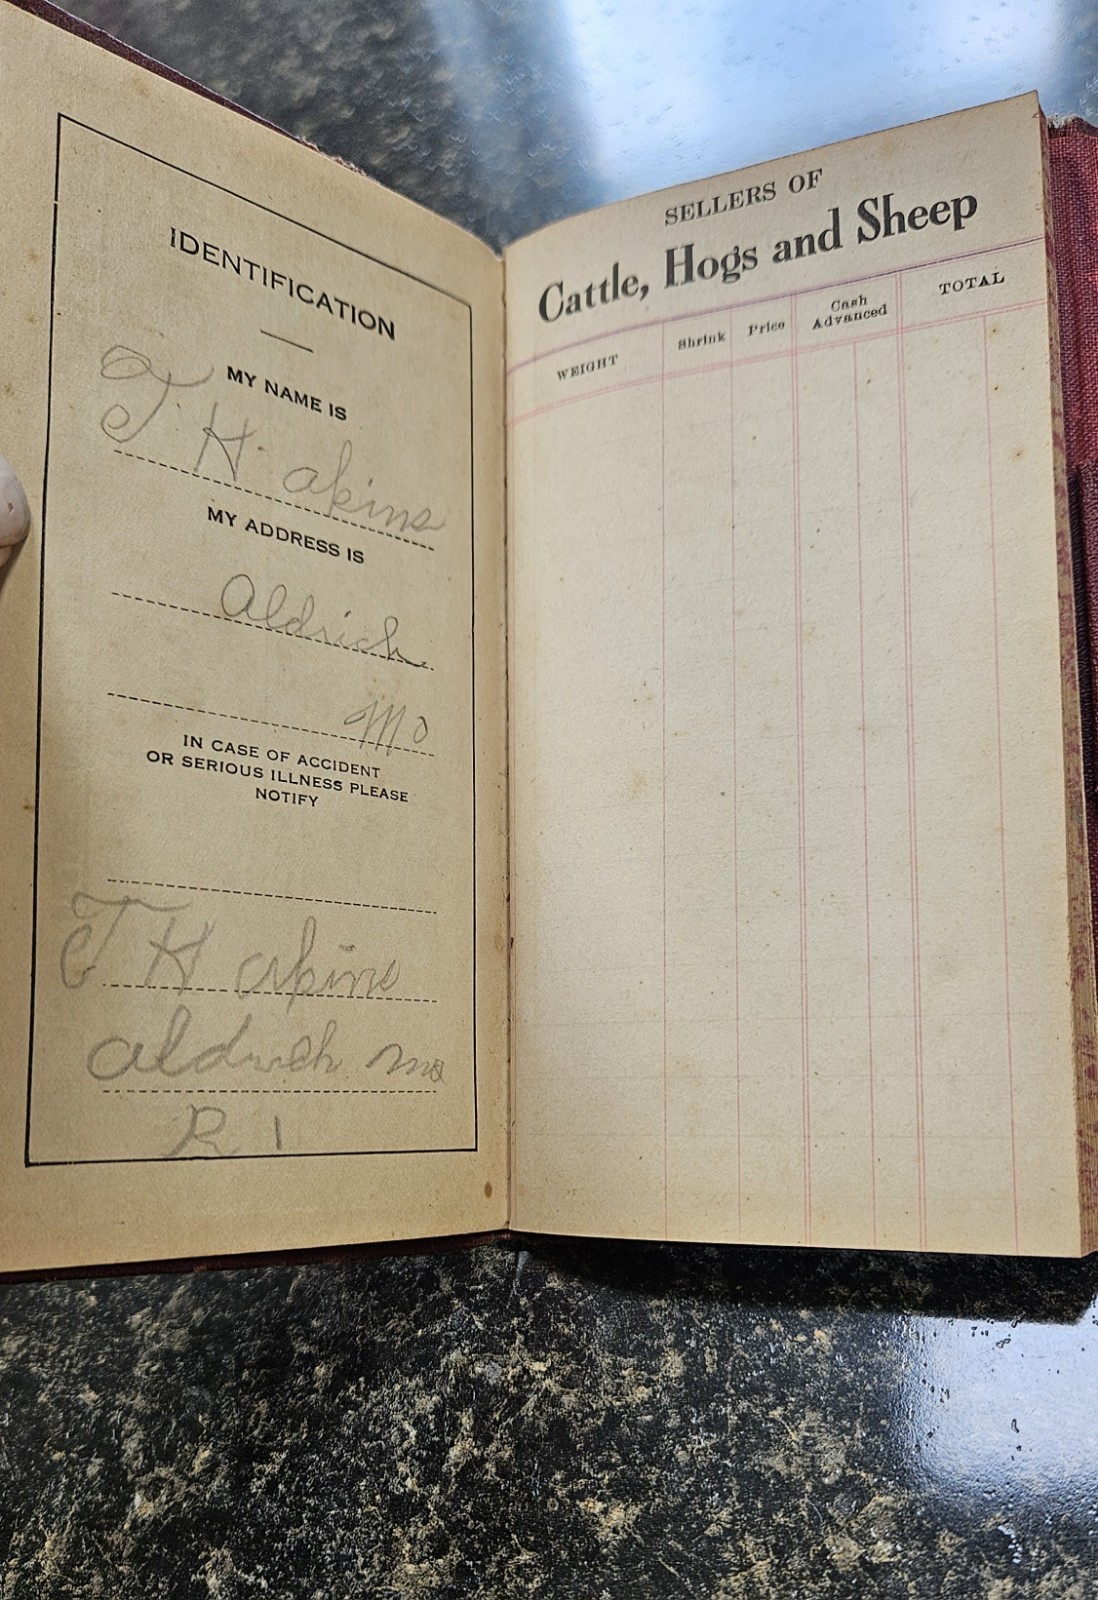 IDENTIFICATION
MY NAME IS
T. H. akins
MY ADDRESS IS
Aldrich
Mo
IN CASE OF ACCIDENT
OR SERIOUS ILLNESS PLEASE
NOTIFY
T H akins
aldrich mo
R 1
SELLERS OF
Cattle, Hogs and Sheep
WEIGHT Shrink Price Cash Advanced TOTAL